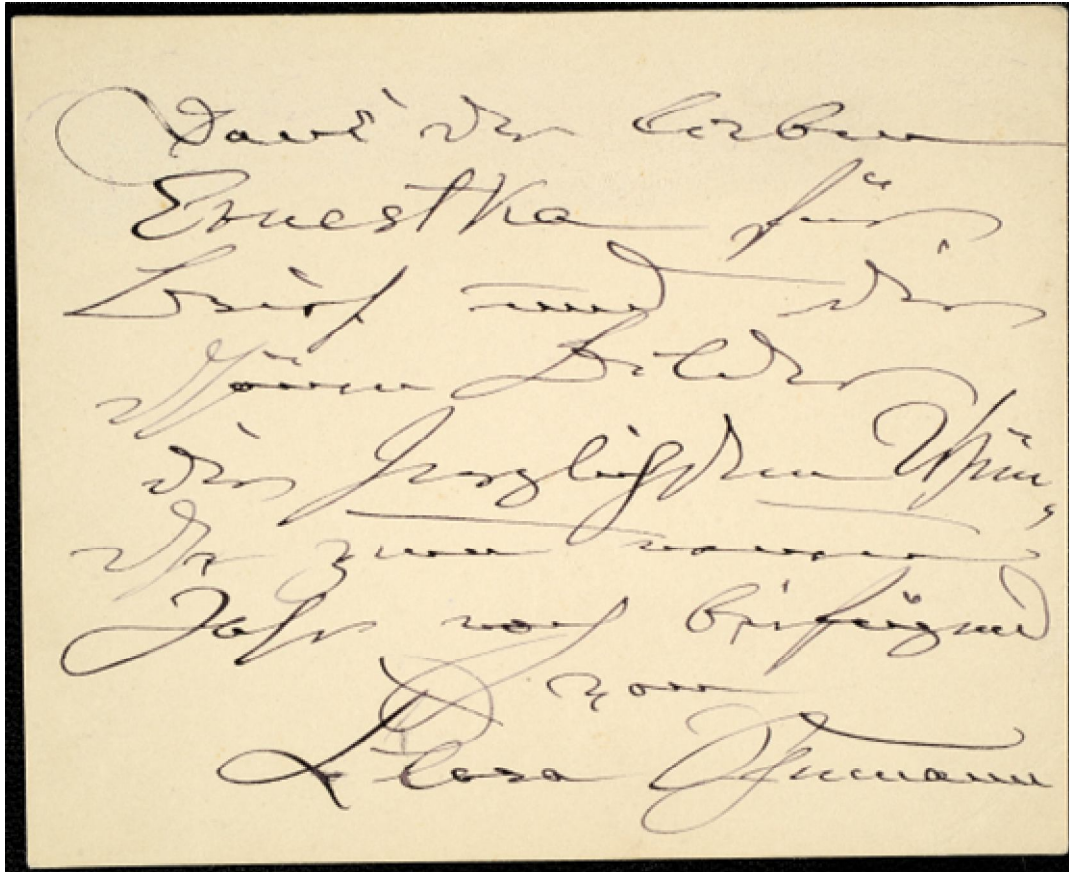 Dank der lieben
Ernestka für
Brief und die
schönen Bilder
die herzlichsten Wün-
sche zum neuen
Jahr noch beifügend
von
Clara Schumann